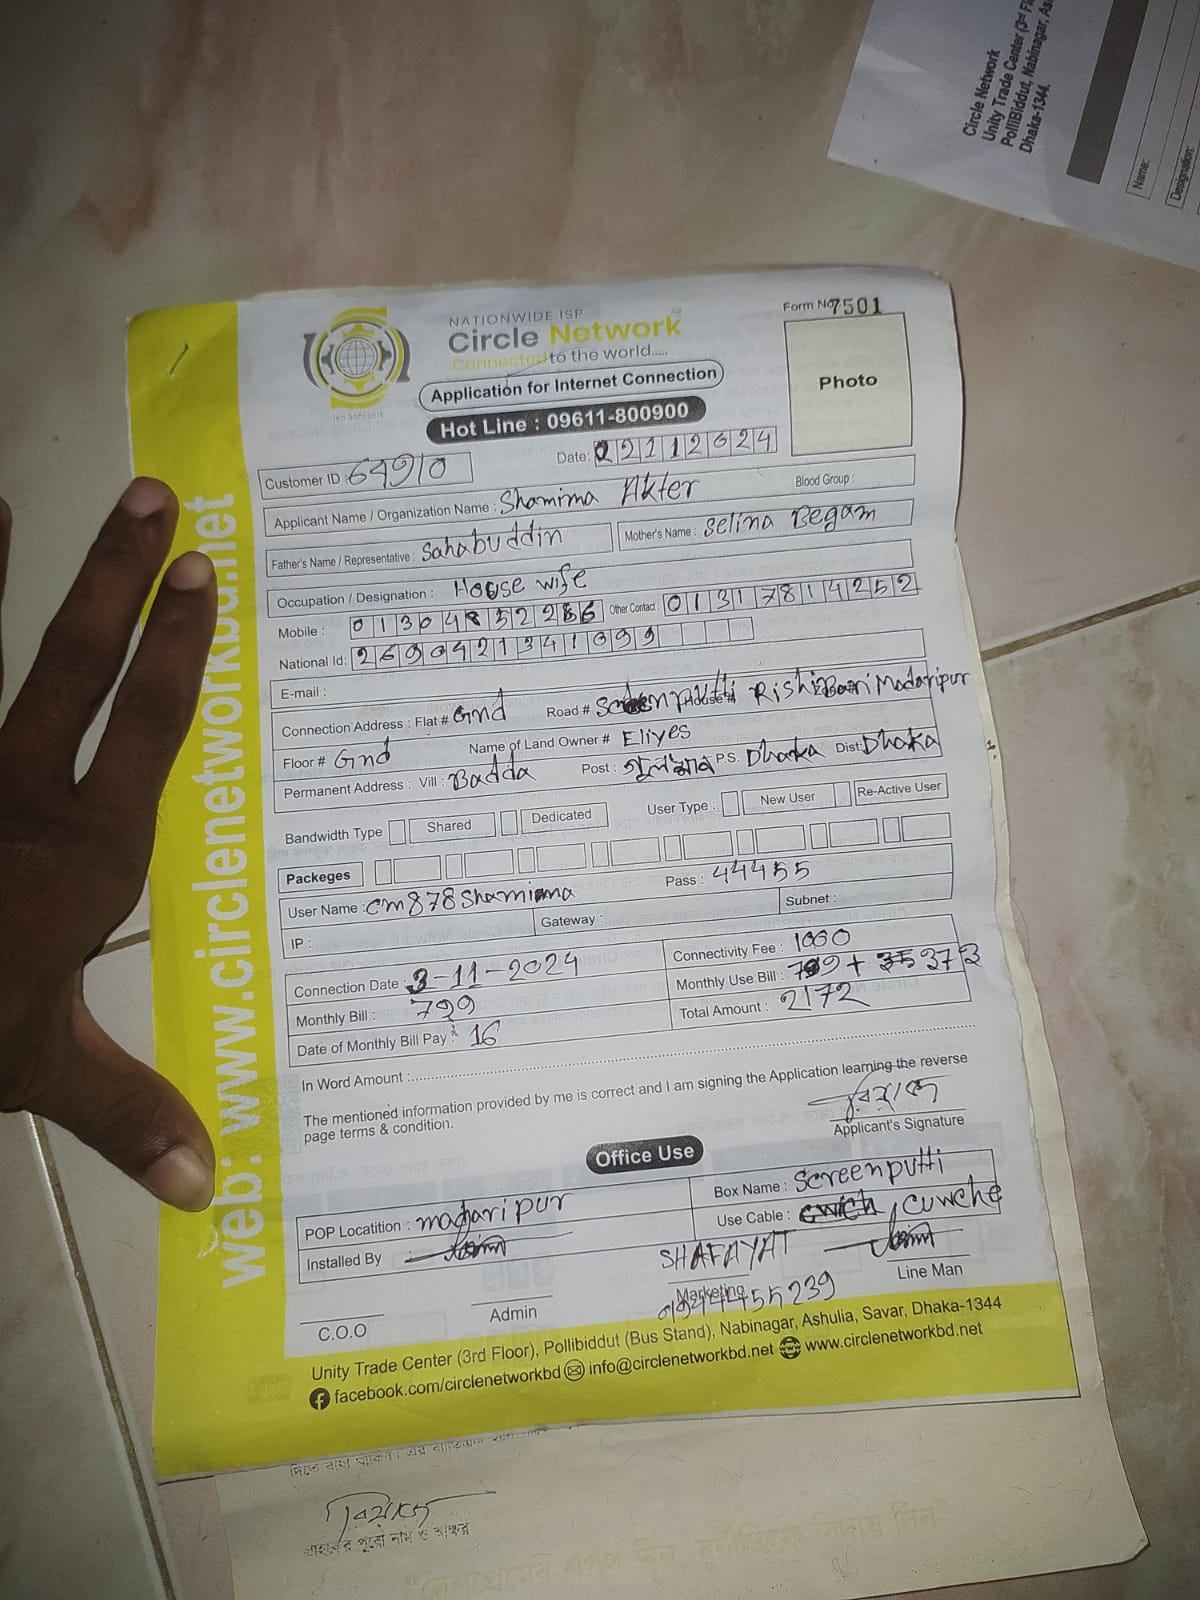 Circle Network
Unity Trade Center (3rd
PolliBiddut, Nabinagar,
Dhaka-1344.
Name:
Designation:
NATIONWIDE ISP
Circle Network
Connected to the world.....
ISO 9001:2015
Form No 7501
Photo
Application for Internet Connection
Hot Line : 09611-800900
Date:
Customer ID : 64910
Applicant Name / Organization Name : Shamima Akter Blood Group :
Father's Name / Representative : Sahabuddin Mother's Name : Selina Begam
Occupation / Designation : House wife
Mobile : Other Contact : 01317814252
National Id: 2690421341099
E-mail :
Connection Address : Flat # Gnd Road # House # Rishi Bari Madaripur
Floor # Gnd Name of Land Owner # Eliyes
Permanent Address : Vill : Badda Post : গুলশান P.S. Dhaka Dist: Dhaka
Bandwidth Type Shared Dedicated User Type : New User Re-Active User
Packeges
User Name : cm878shamima Pass : 44455
IP : Gateway : Subnet :
Connection Date : 3-11-2024 Connectivity Fee : 1000
Monthly Bill : 799 Monthly Use Bill : 799 + 373
Date of Monthly Bill Pay : 16 Total Amount : 2172
In Word Amount :
The mentioned information provided by me is correct and I am signing the Application learning the reverse
page terms & condition.
Applicant's Signature
Office Use
POP Locatition : madaripur Box Name : Screenputti
Installed By : Use Cable : Cuwche
SHAFAYAT
C.O.O Admin Marketing Line Man
Unity Trade Center (3rd Floor), Pollibiddut (Bus Stand), Nabinagar, Ashulia, Savar, Dhaka-1344
facebook.com/circlenetworkbd info@circlenetworkbd.net www.circlenetworkbd.net
web: www.circlenetworkbd.net
গ্রাহকের পুরো নাম ও স্বাক্ষর